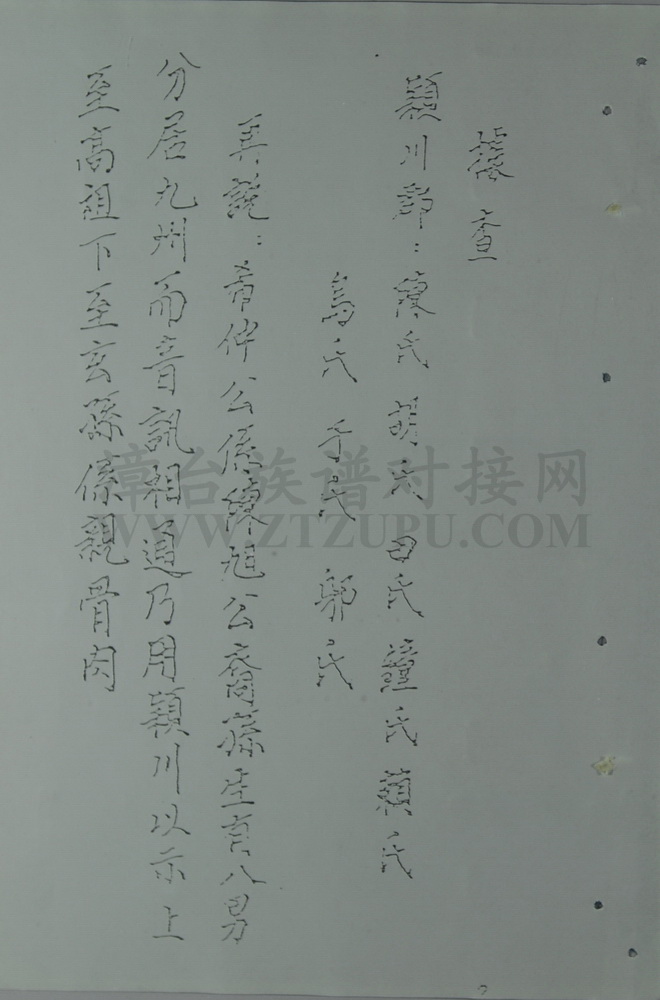 據查
潁川郡：陳氏 胡氏 田氏 鍾氏 賴氏
烏氏 于氏 鄔氏
再說：希伴公係陳旭公裔孫生育八男
分居九州而音訊相通乃用潁川以示上
至高祖下至玄孫係親骨肉
章台族谱对接网
WWW.ZTZUPU.COM
2